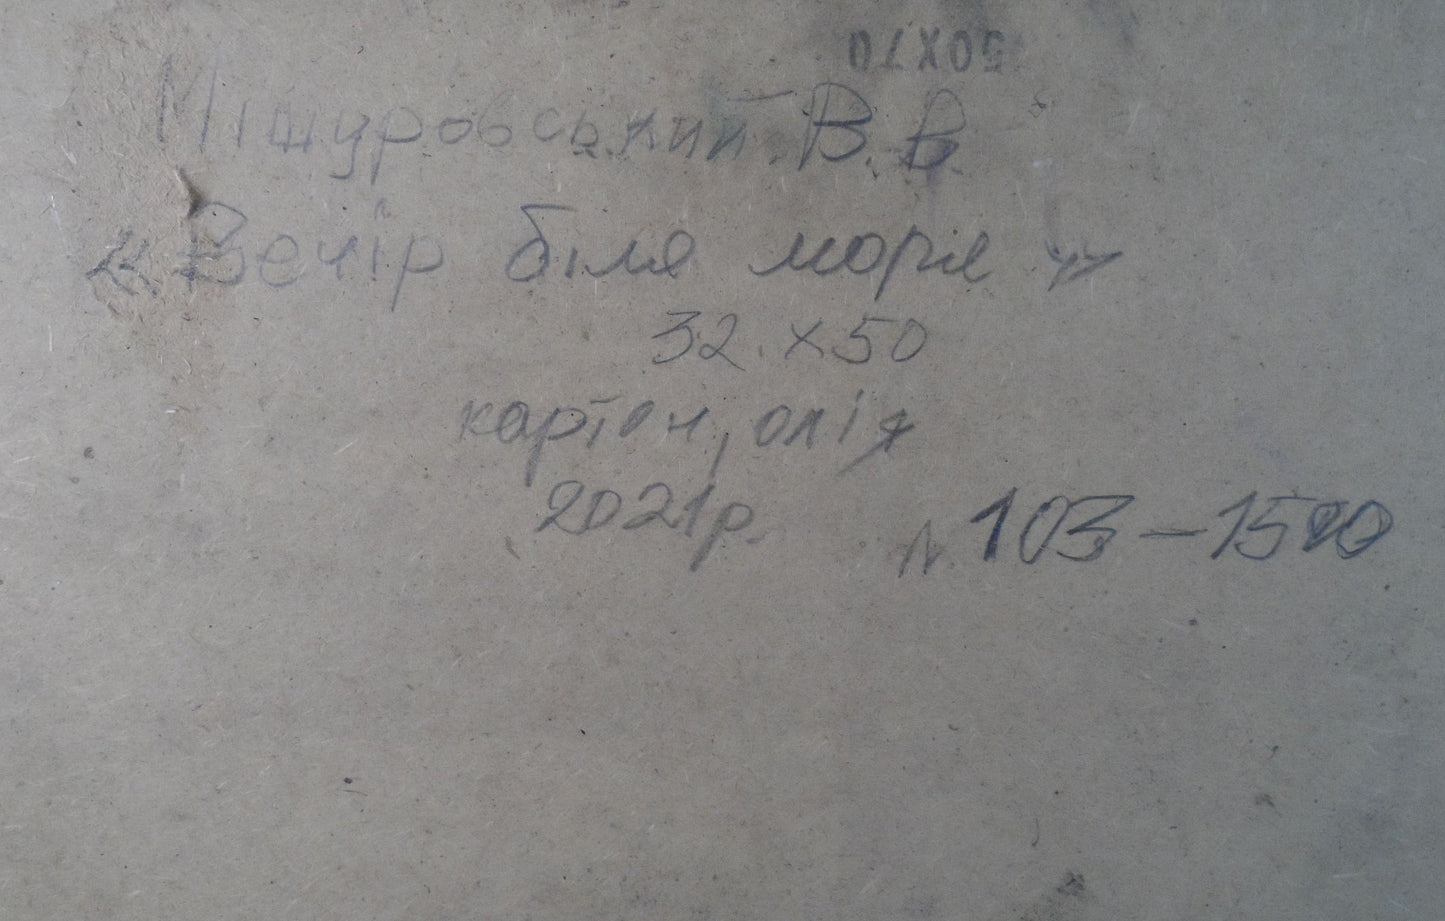 50X70
Мішуровський В.В.
«Вечір біля моря»
32 x 50
картон, олія
2021р.
N. 103-1500